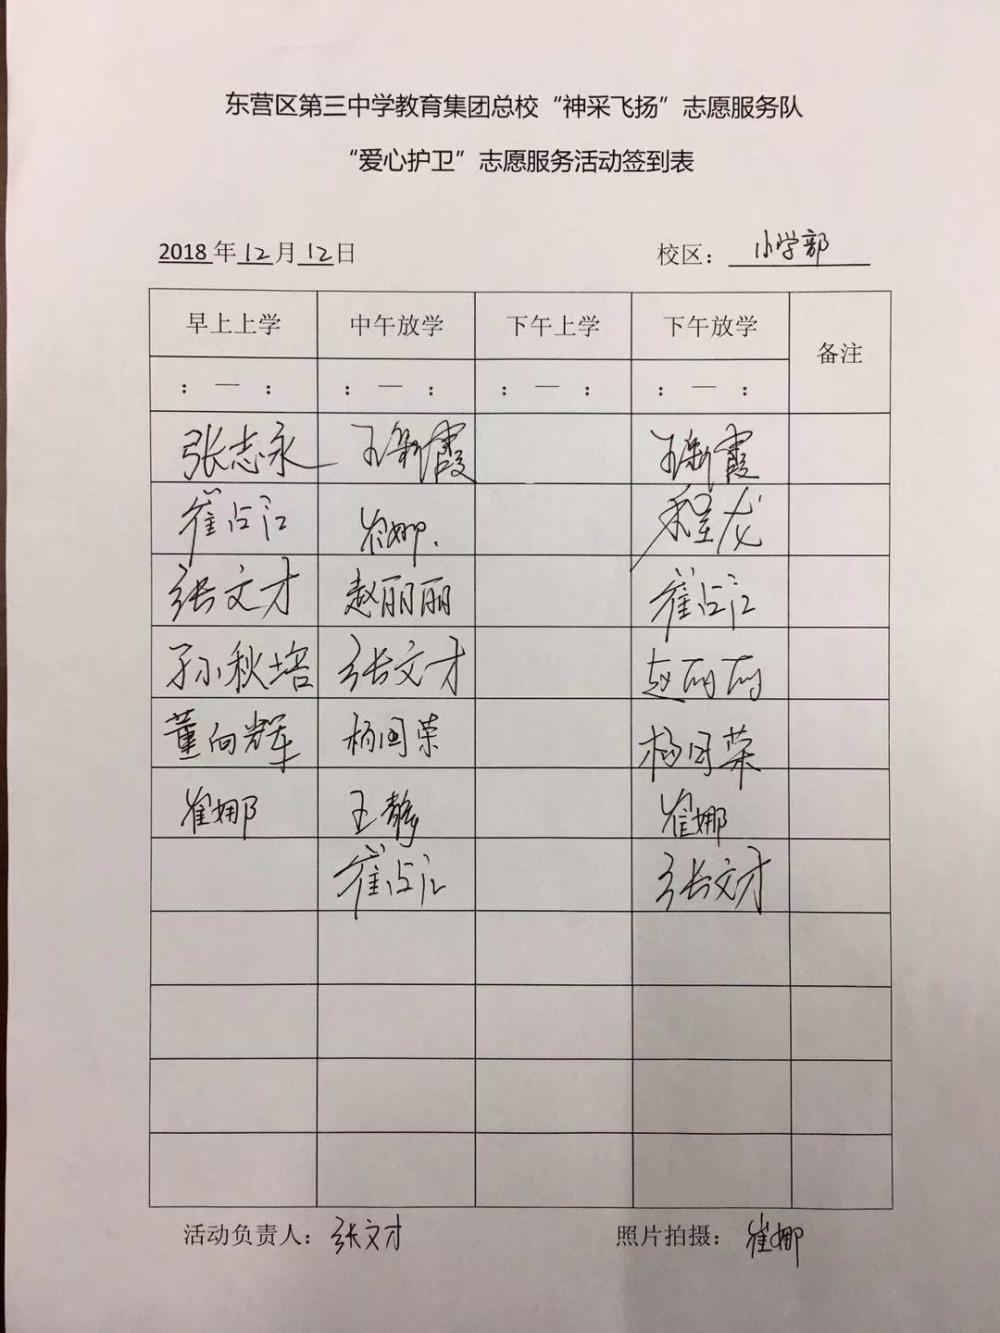 东营区第三中学教育集团总校“神采飞扬”志愿服务队
“爱心护卫”志愿服务活动签到表
2018年12月12日 校区：小学部
早上上学 中午放学 下午上学 下午放学 备注
：— ： ：— ： ：— ： ：— ：
张志永 王新霞 王新霞
崔占江 崔娜. 程龙
张文才 赵丽丽 崔占江
孙秋培 张文才 赵丽丽
董向辉 杨国荣 杨国荣
崔娜 王静 崔娜
崔占江 张文才
活动负责人：张文才 照片拍摄：崔娜